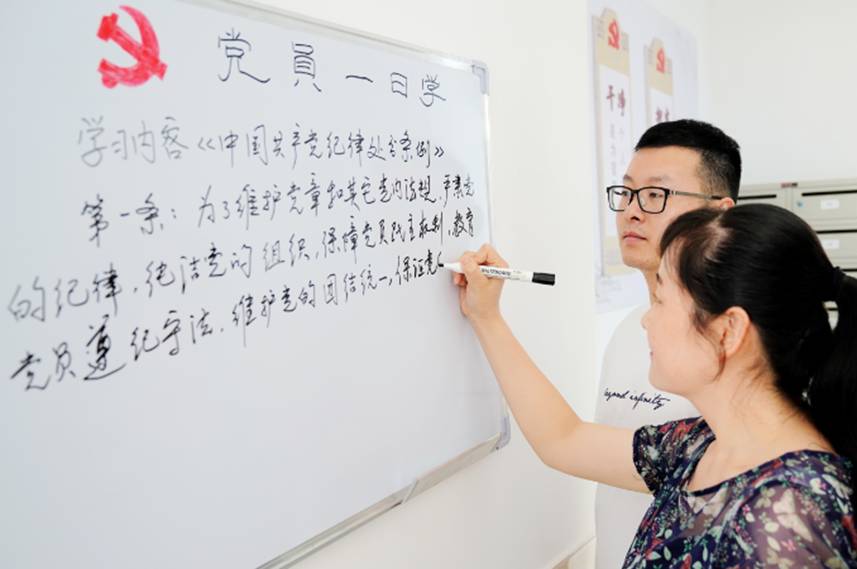 党員一日学
学习内容《中国共产党纪律处分条例》
第一条：为了维护党章和其它党内法规，严肃党
的纪律，纯洁党的组织，保障党员民主权利，教育
党员遵纪守法，维护党的团结统一，保证党
干净
beyond infinity